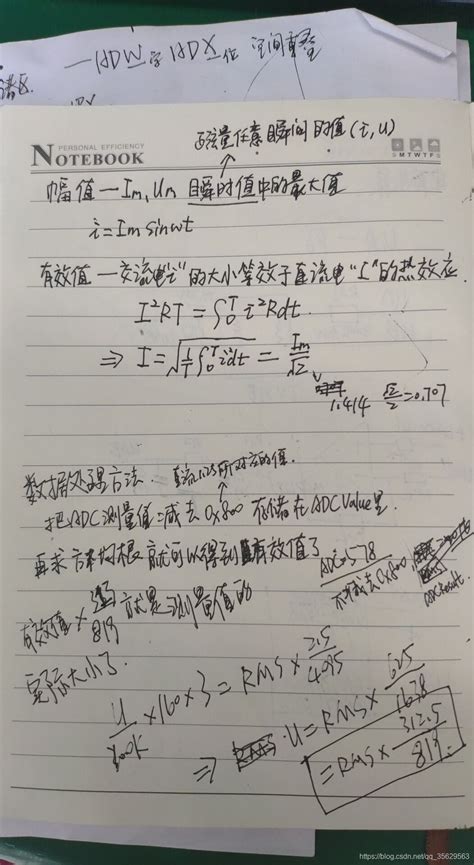 一 HDW字 HDX位 空间重叠
PERSONAL EFFICIENCY
NOTEBOOK
S M T W T F S
磁量任意瞬间的值(i,u)
幅值一Im,Um 瞬时值中的最大值
i=Im sinwt
有效值一交流电"i"的大小等效于直流电"I"的热效应
I²RT=∫₀ᵀi²Rdt.
⇒ I=√(1/T ∫₀ᵀi²dt) = Im/√2
1.414 √2/2=0.707
数据处理方法. 直流1.25所对应的值.
把ADC测量值减去0x800 存储在ADCValue里.
再求方均根就可以得到有效值了
ADC=578
不减去0x800
有效值× /819 就是测量值的
实际大小了.
U/300K ×160×3 = RMS× 2.5/4095
⇒ U=RMS× 625/1638
=RMS× 312.5/819.
https://blog.csdn.net/qq_35629563